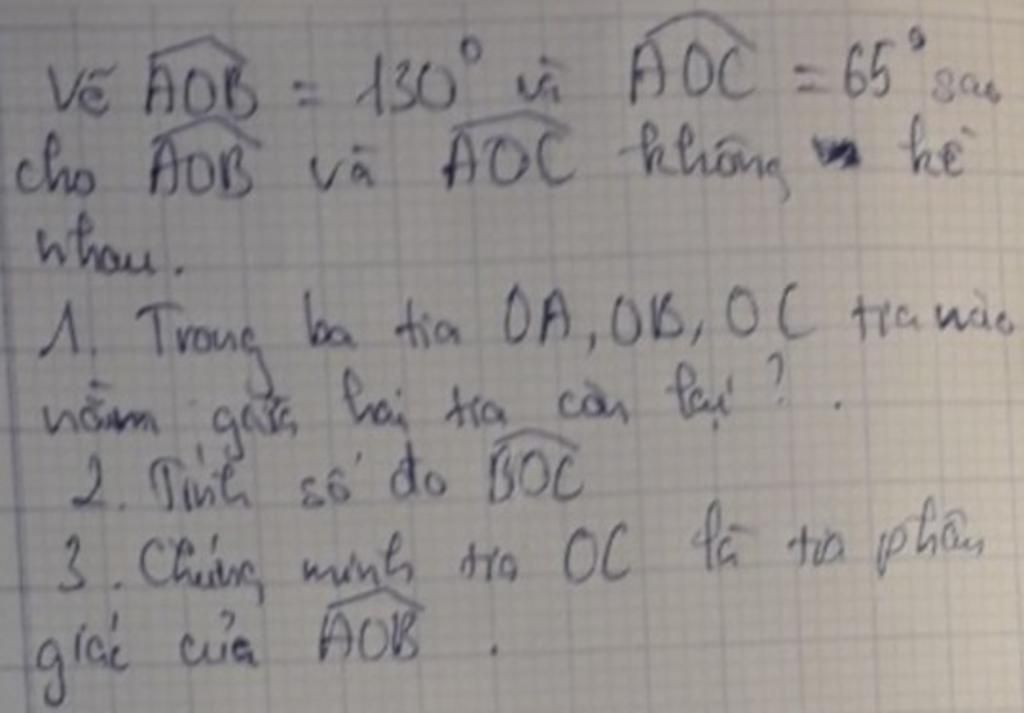 Vẽ AOB = 130° và AOC = 65° sao
cho AOB và AOC không kề
nhau.
1. Trong ba tia OA, OB, OC tia nào
nằm giữa hai tia còn lại ? .
2. Tính số đo BOC
3. Chứng minh tia OC là tia phân
giác của AOB .